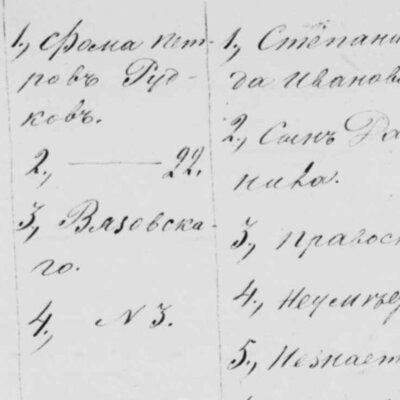 1., Фома Пет-
ровъ Руд-
ковъ.
2., — 22.
3, Вязовска-
го.
4, N 3.
1., Степани
да Иванов
2., Сынъ Да
нила.
3., Правос
4.,
5., Незнает